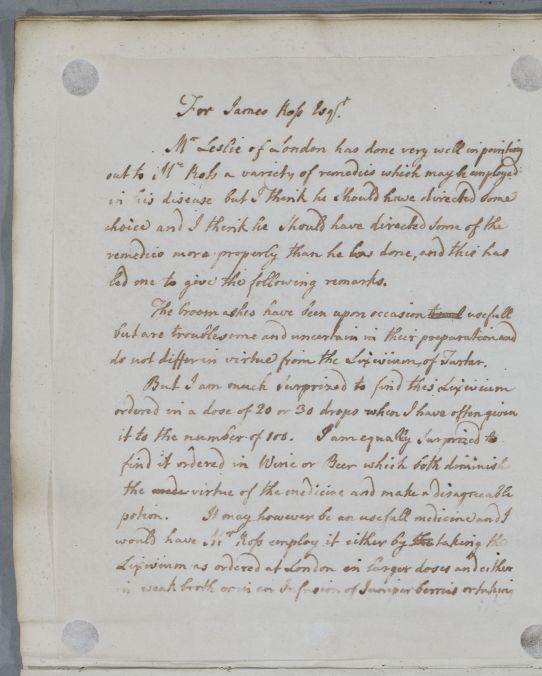 For James Ross Esqr.
Mr Leslie of London has done very well in pointing
out to Mr Ross a variety of remedies which may be employed
in his disease but I think he should have directed some
choice and I think he should have directed some of the
remedies more properly than he has done, and this has
led me to give the following remarks.
The broom ashes have been upon occasion usefull
but are troublesome and uncertain in their preparation and
do not differ in virtue from the Lixivium of Tartar.
But I am much Surprized to find this Lixivium
ordered in a dose of 20 or 30 drops when I have often given
it to the number of 100. I am equally Surprized to
find it ordered in Wine or Beer which both diminish
the virtue of the medicine and make a disagreeable
potion. It may however be an usefull medicine and I
would have Mr Ross employ it either by taking the
Lixivium as ordered at London in larger doses and either
in weak broth or in an Infusion of Juniper berries or taking